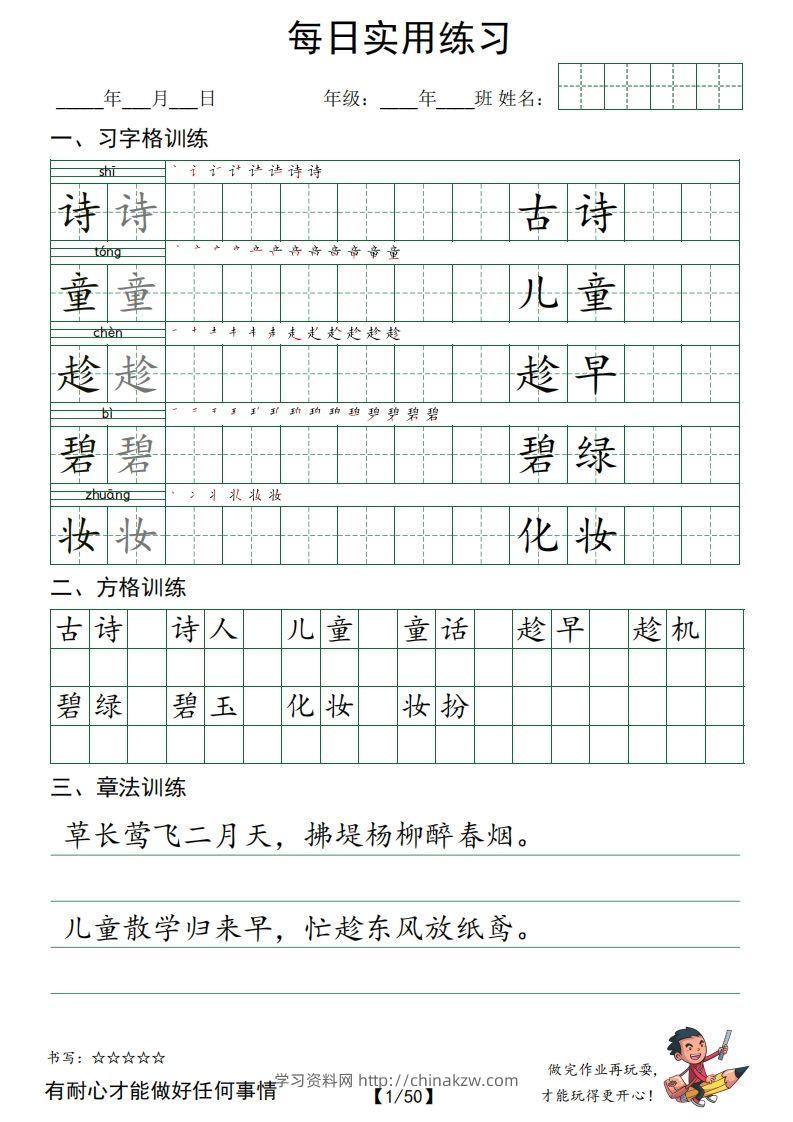 每日实用练习
_____年___月___日 年级：____年____班 姓名：
一、习字格训练
shī
诗 诗 古 诗
tóng
童 童 儿 童
chèn
趁 趁 趁 早
bì
碧 碧 碧 绿
zhuāng
妆 妆 化 妆
二、方格训练
古诗 诗人 儿童 童话 趁早 趁机
碧绿 碧玉 化妆 妆扮
三、章法训练
草长莺飞二月天，拂堤杨柳醉春烟。
儿童散学归来早，忙趁东风放纸鸢。
书写：☆☆☆☆☆
做完作业再玩耍，
才能玩得更开心！
有耐心才能做好任何事情
学习资料网 http://chinakzw.com
【1/50】